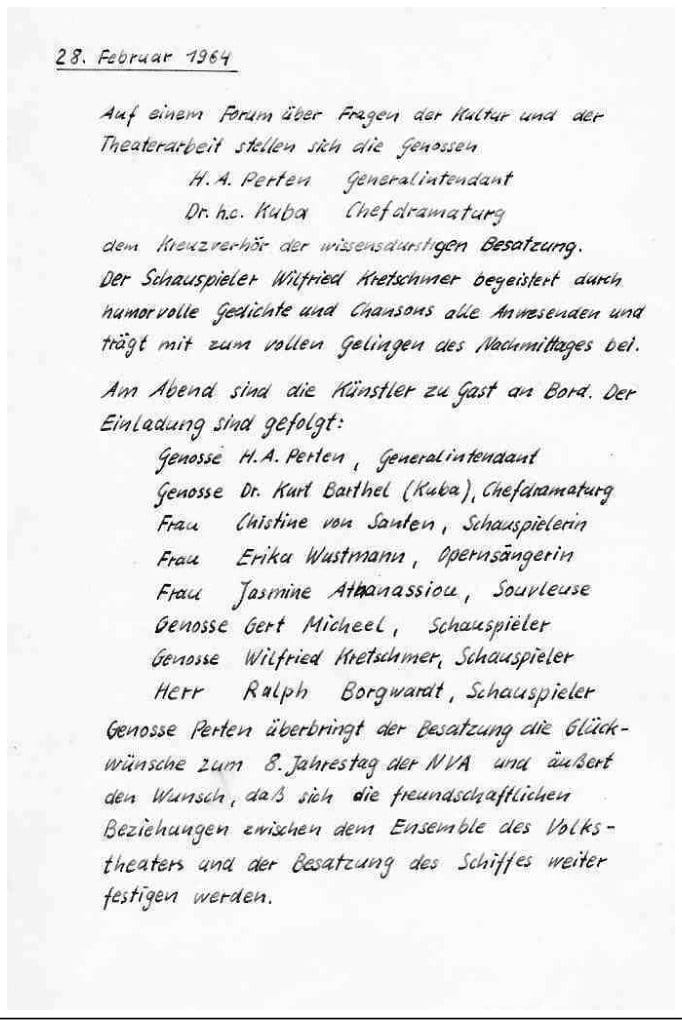 28. Februar 1964
Auf einem Forum über Fragen der Kultur und der
Theaterarbeit stellen sich die Genossen
H. A. Perten Generalintendant
Dr. h.c. Kuba Chefdramaturg
dem Kreuzverhör der wissensdurstigen Besatzung.
Der Schauspieler Wilfried Kretschmer begeistert durch
humorvolle Gedichte und Chansons alle Anwesenden und
trägt mit zum vollen Gelingen des Nachmittages bei.
Am Abend sind die Künstler zu Gast an Bord. Der
Einladung sind gefolgt:
Genosse H. A. Perten, Generalintendant
Genosse Dr. Kurt Barthel (Kuba), Chefdramaturg
Frau Chistine von Santen, Schauspielerin
Frau Erika Wustmann, Opernsängerin
Frau Jasmine Athanassiou, Souvleuse
Genosse Gert Micheel, Schauspieler
Genosse Wilfried Kretschmer, Schauspieler
Herr Ralph Borgwardt, Schauspieler
Genosse Perten überbringt der Besatzung die Glück-
wünsche zum 8. Jahrestag der NVA und äußert
den Wunsch, daß sich die freundschaftlichen
Beziehungen zwischen dem Ensemble des Volks-
theaters und der Besatzung des Schiffes weiter
festigen werden.